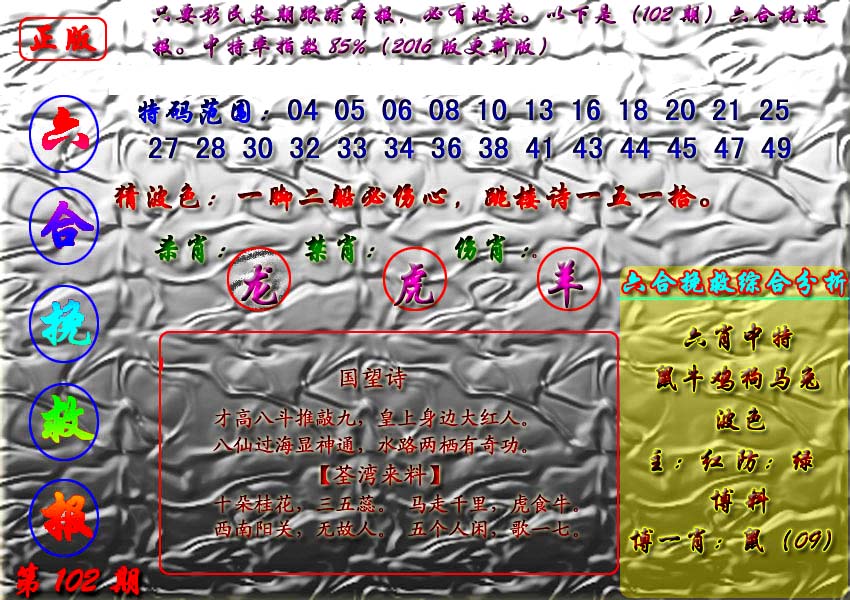 正版
只要彩民长期跟踪本报，必有收获。以下是（102 期）六合挽救
报。中特率指数 85%（2016 版更新版）
六合挽救报
第 102 期
特码范围：04 05 06 08 10 13 16 18 20 21 25
27 28 30 32 33 34 36 38 41 43 44 45 47 49
猜波色：一脚二船必伤心，跳楼诗一五一拾。
杀肖：龙 禁肖：虎 伤肖：羊
国望诗
才高八斗推敲九，皇上身边大红人。
八仙过海显神通，水路两栖有奇功。
【荃湾来料】
十朵桂花，三五蕊。 马走千里，虎食牛。
西南阳关，无故人。 五个人闲，歌一七。
六合挽救综合分析
六肖中特
鼠牛鸡狗马兔
波色
主：红防：绿
博料
博一肖：鼠（09）